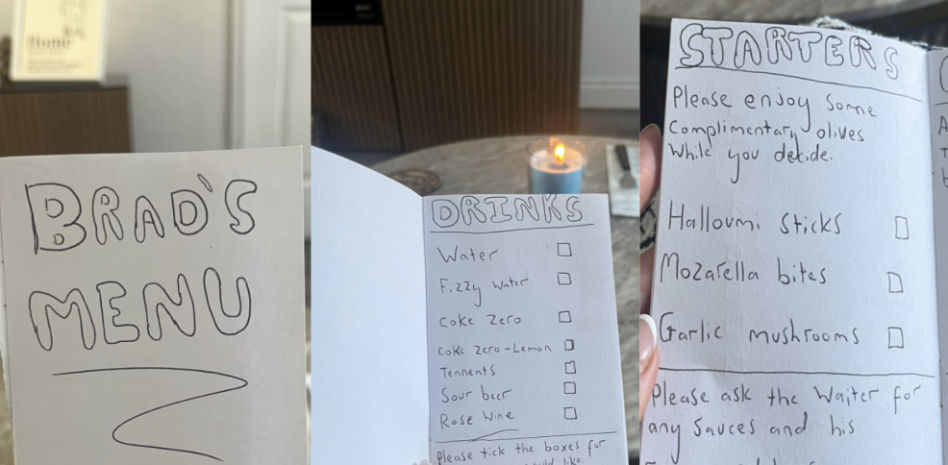 Home
BRAD'S
MENU
DRINKS
Water
Fizzy water
Coke Zero
Coke Zero-Lemon
Tennents
Sour beer
Rose Wine
Please tick the boxes for
would like.
STARTERS
Please enjoy some
Complimentary olives
While you decide.
Halloumi Sticks
Mozarella bites
Garlic mushrooms
Please ask the Waiter for
any Sauces and his